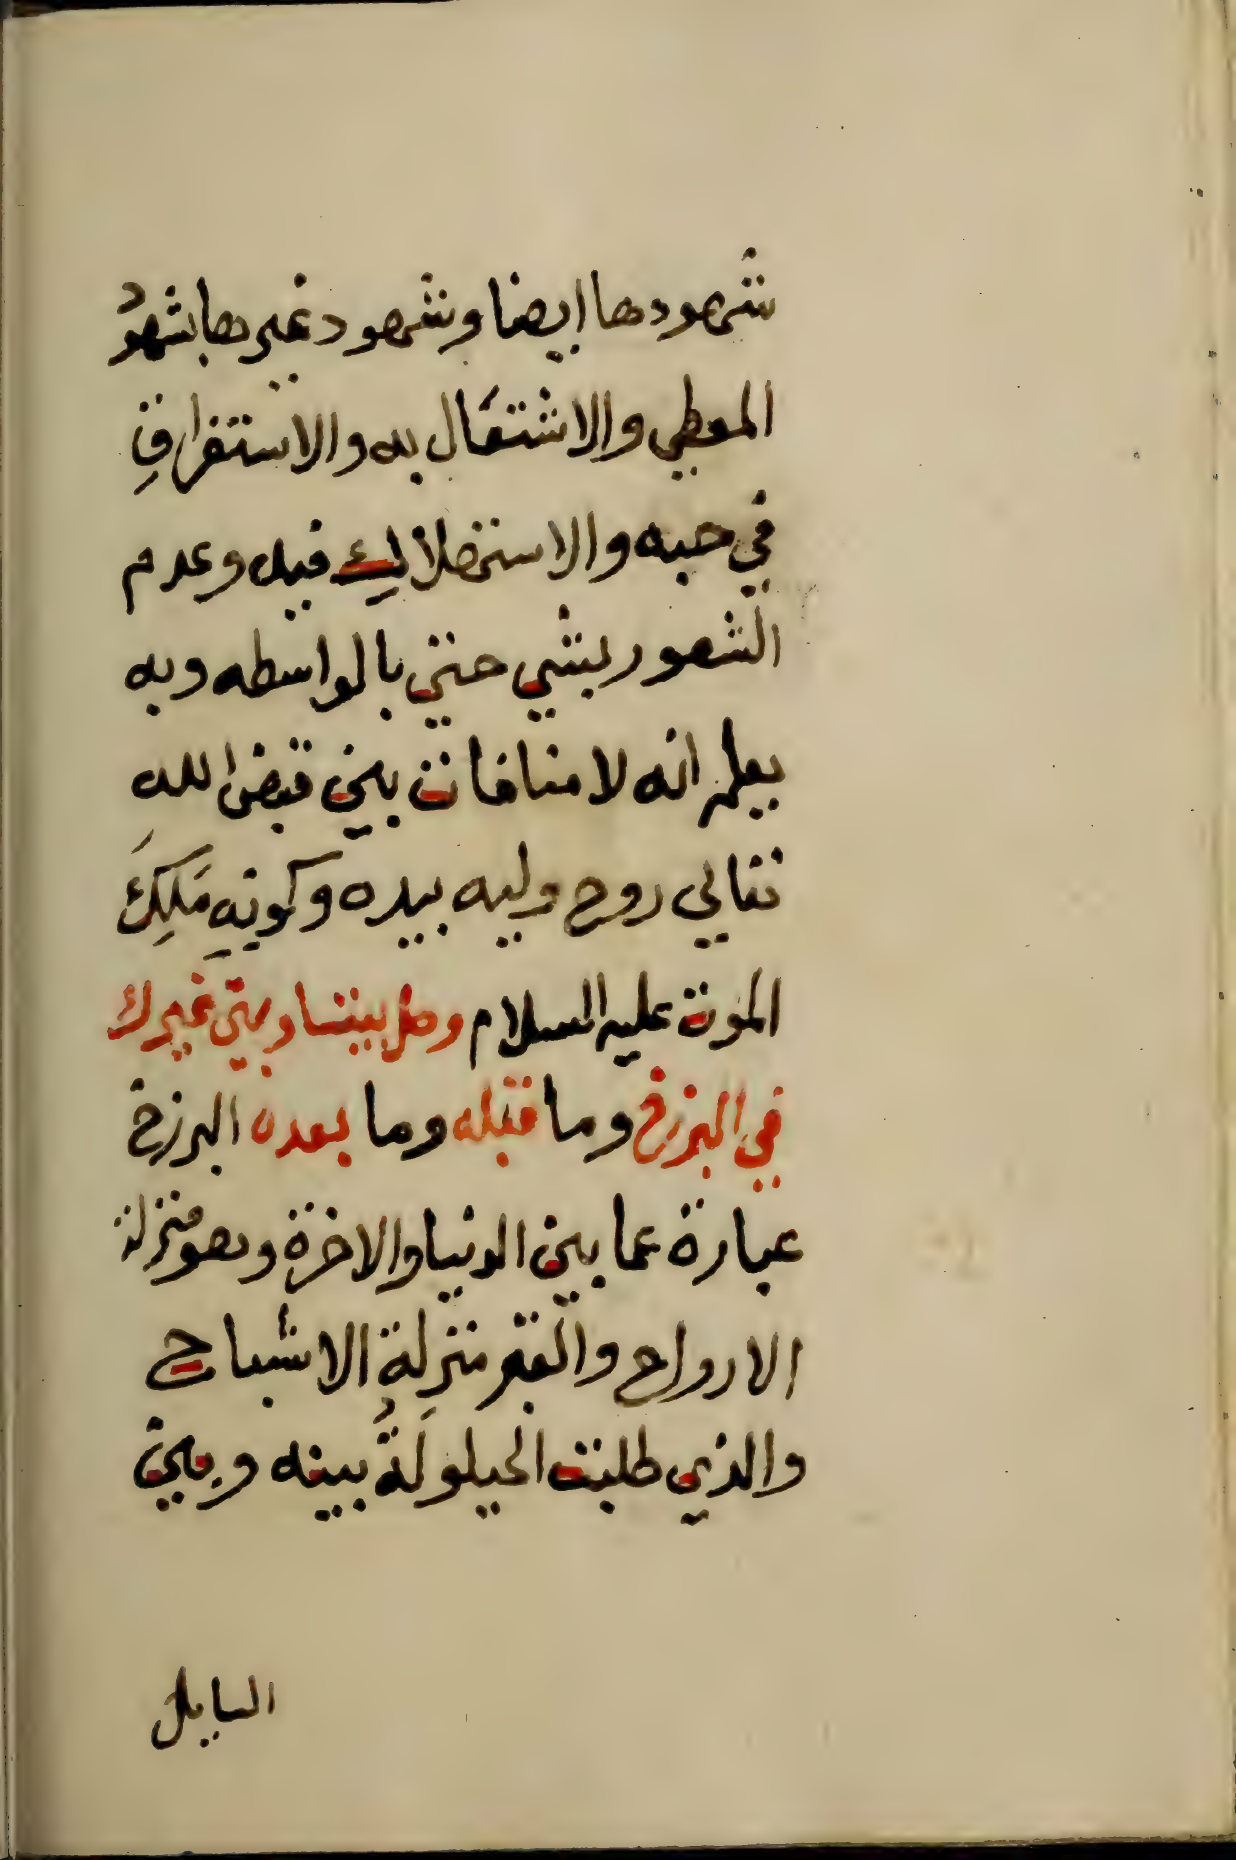 شهودها ايضا وشهود غيرها بشهود
المعطي والاشتغال به والاستغراق
في حبه والاستهلاك فيه وعدم
الشعور بشي حتي بالواسطه وبه
يعلم انه لا منافات بين قبض الله
تعالي روح وليه بيده وكونِه مَلَكَ
الموت عليه السلام وحل بيننا وبين غيرك
في البرزخ وما قبله وما بعده البرزخ
عبارة عما بين الدنيا والاخرة وهو منزلة
الارواح والقبر منزلة الاشباح
والذي طلبت الحيلولةُ بينه وبين
السايل